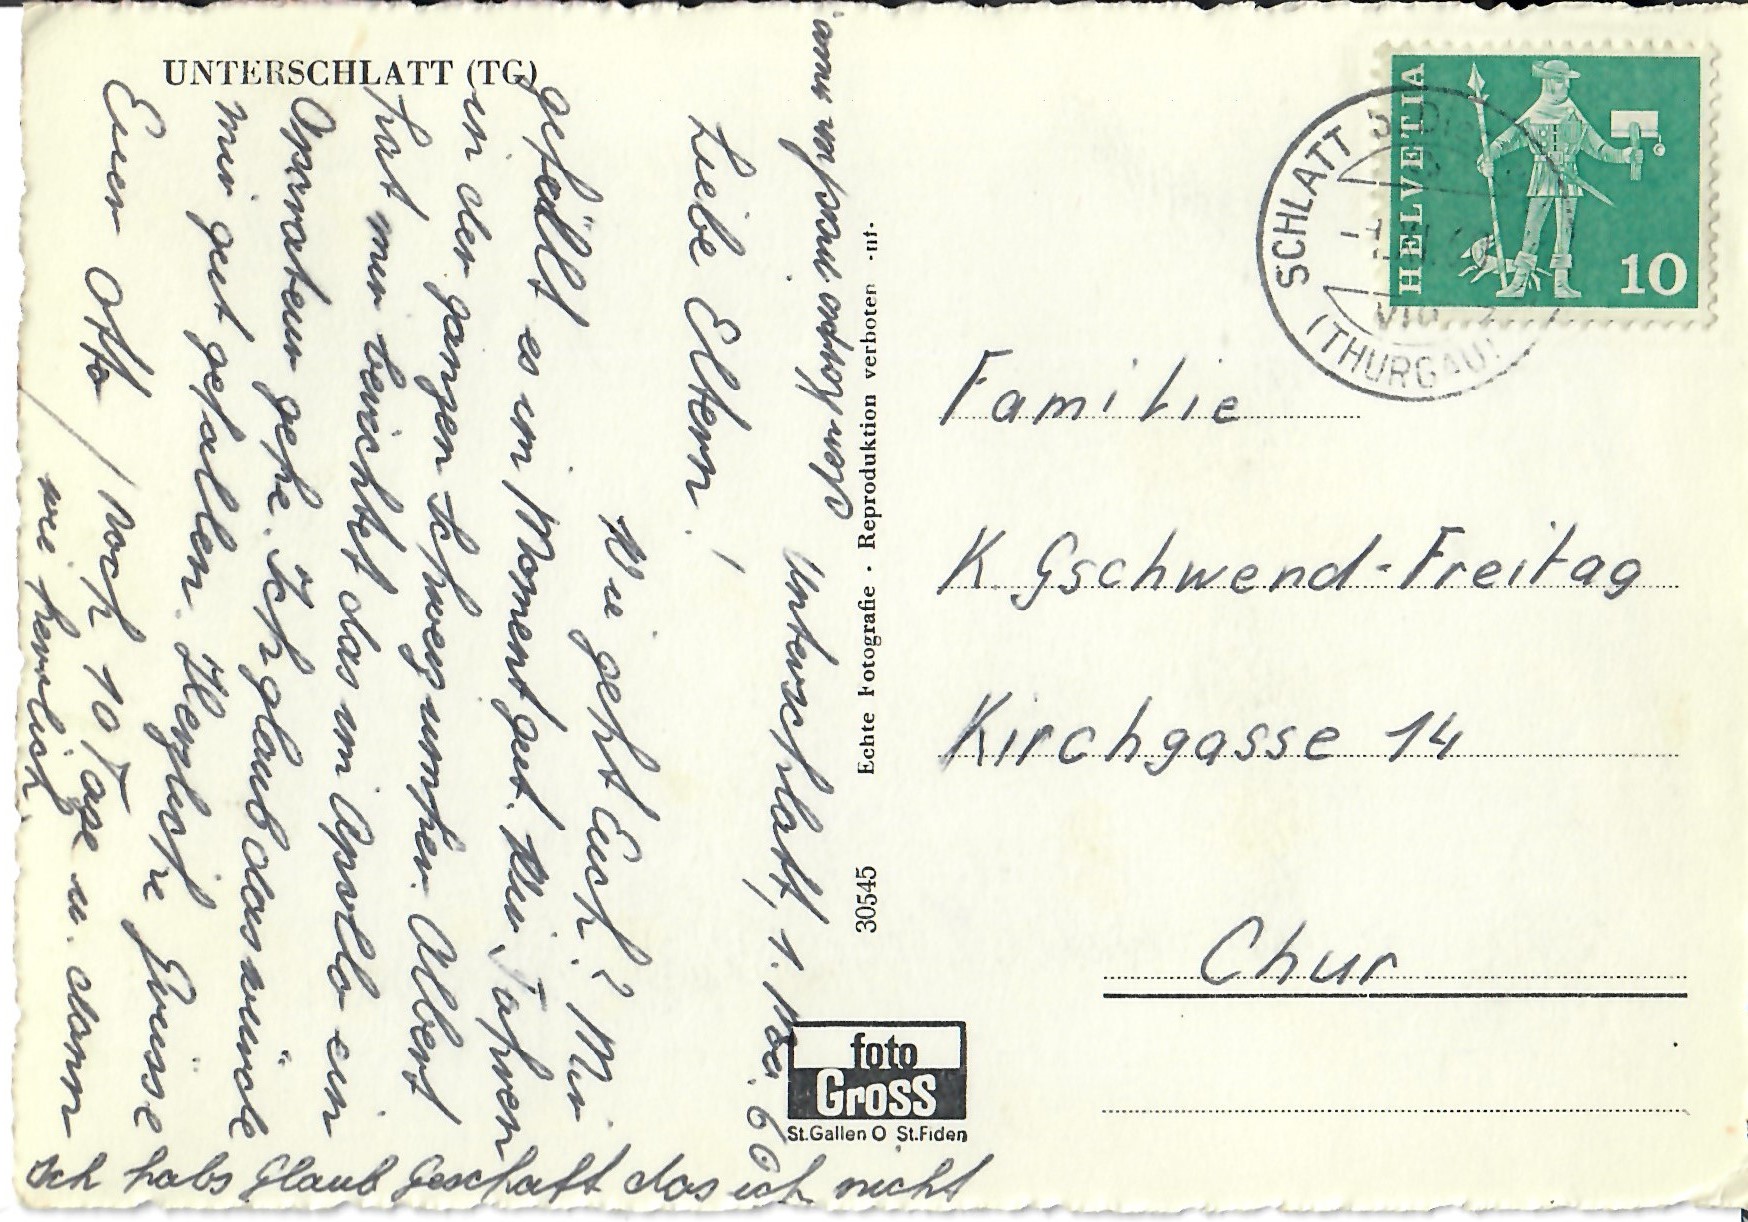 UNTERSCHLATT (TG)
Unterschlatt, 1. Mai. 60
Liebe Eltern!
Wie geht Euch? Mir
gefällt es im Moment gut. Wir fahren
in der ganzen Schweiz umher. Albert
hat mir berichtet das im Apollo ein
Operateur gehe. Ich glaub das würde
mir gut gefallen. Herzliche Grüsse
Euer Otto / Noch 10 Tage u. dann
wie herrlich.
Ich habs glaub geschafft das ich nicht
den Korpo machen muss.
Echte Fotografie · Reproduktion verboten
30545
foto
Gross
St.Gallen O St.Fiden
HELVETIA
10
SCHLATT
(THURGAU)
Familie
K. Gschwend-Freitag
Kirchgasse 14
Chur